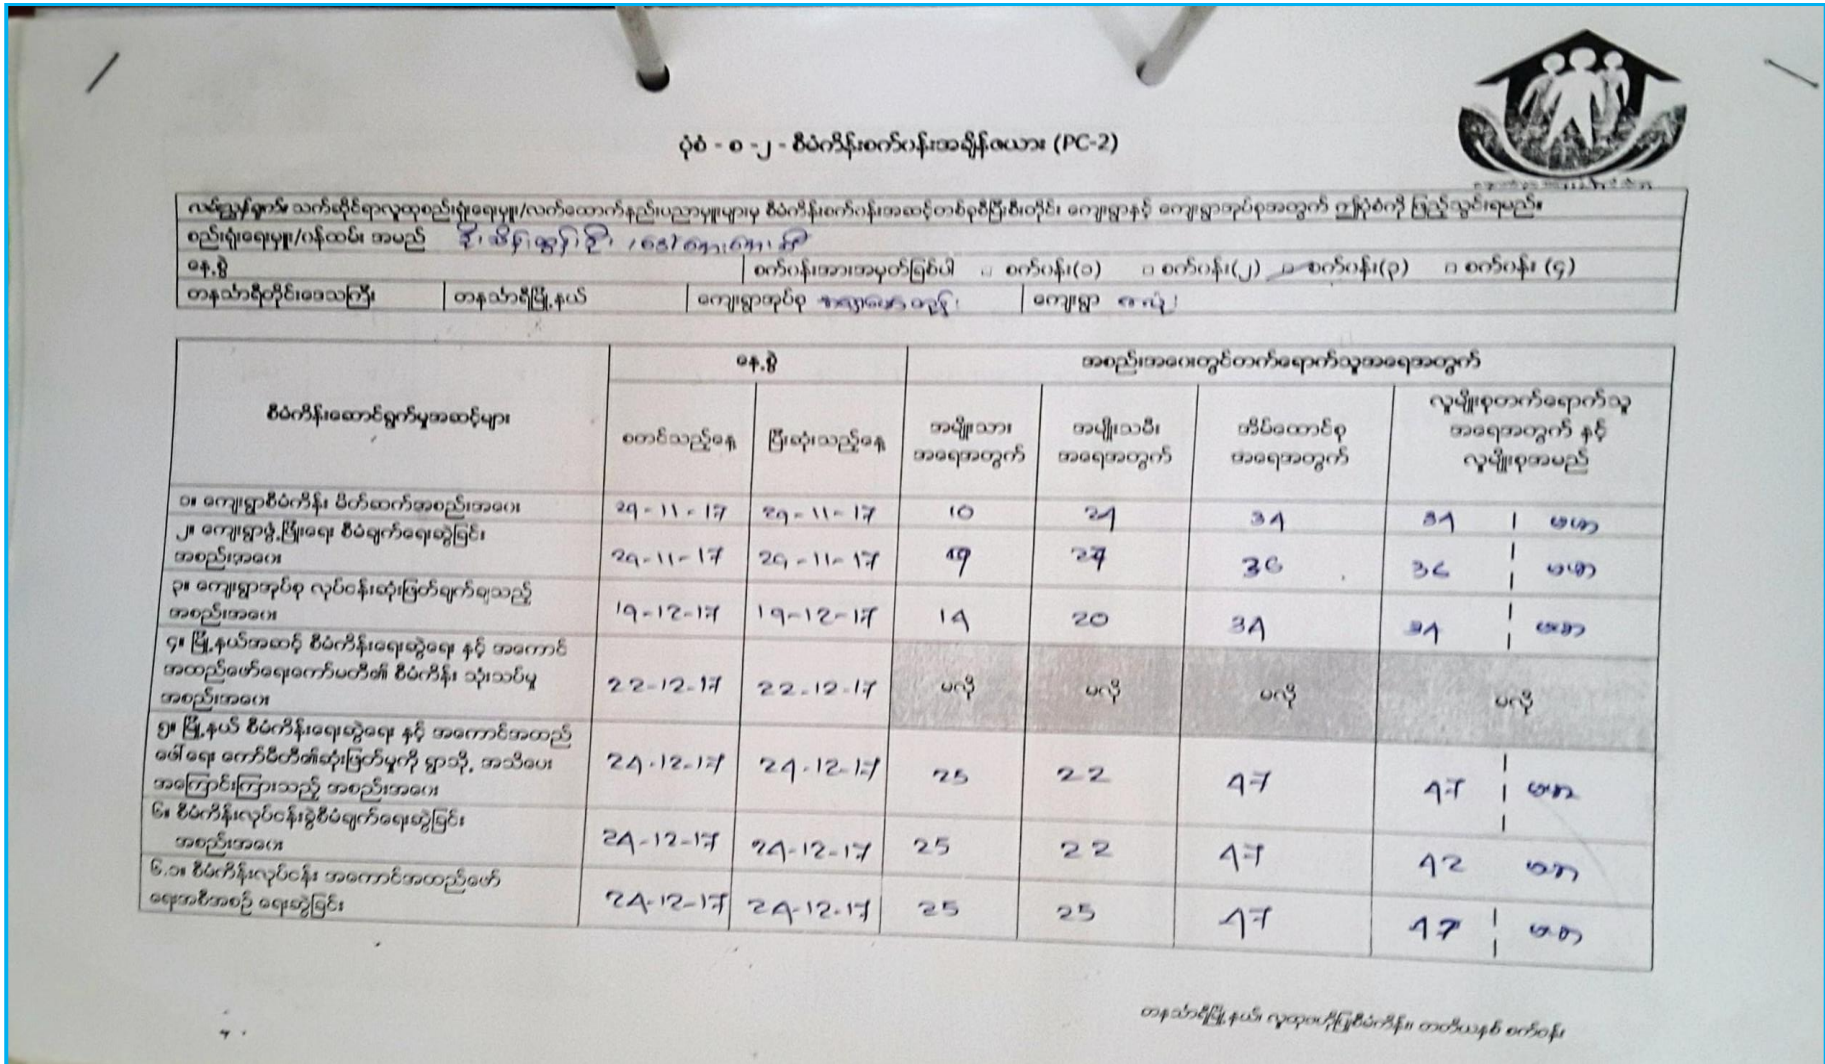 ပုံစံ - စ -၂ - စီမံကိန်းစက်ဝန်းအချိန်ဇယား (PC-2)
လမ်းညွှန်ချက်။ သက်ဆိုင်ရာလူထုစည်းရုံးရေးမှူး/လက်ထောက်နည်းပညာမှူးများမှ စီမံကိန်းစက်ဝန်းအဆင့်တစ်ခုစီပြီးစီးတိုင်း ကျေးရွာနှင့် ကျေးရွာအုပ်စုအတွက် ဤပုံစံကို ဖြည့်သွင်းရမည်။
စည်းရုံးရေးမှူး/ဝန်ထမ်း အမည်
နေ့စွဲ စက်ဝန်းအားအမှတ်ခြစ်ပါ □ စက်ဝန်း(၁) □ စက်ဝန်း(၂) စက်ဝန်း(၃) □ စက်ဝန်း (၄)
တနင်္သာရီတိုင်းဒေသကြီး တနင်္သာရီမြို့နယ် ကျေးရွာအုပ်စု ကျေးရွာ
နေ့စွဲ အစည်းအဝေးတွင်တက်ရောက်သူအရေအတွက်
စီမံကိန်းဆောင်ရွက်မှုအဆင့်များ စတင်သည့်နေ့ ပြီးဆုံးသည့်နေ့ အမျိုးသား အရေအတွက် အမျိုးသမီး အရေအတွက် အိမ်ထောင်စု အရေအတွက် လူမျိုးစုတက်ရောက်သူ
အရေအတွက် နှင့်
လူမျိုးစုအမည်
၁။ ကျေးရွာစီမံကိန်း မိတ်ဆက်အစည်းအဝေး 29-11-17 29-11-17 10 24 34 34 ဗမာ
၂။ ကျေးရွာဖွံ့ဖြိုးရေး စီမံချက်ရေးဆွဲခြင်း
အစည်းအဝေး 29-11-17 29-11-17 36 36 ဗမာ
၃။ ကျေးရွာအုပ်စု လုပ်ငန်းဆုံးဖြတ်ချက်ချသည့်
အစည်းအဝေး 19-12-17 19-12-17 14 20 34 34 ဗမာ
၄။ မြို့နယ်အဆင့် စီမံကိန်းရေးဆွဲရေး နှင့် အကောင်
အထည်ဖော်ရေးကော်မတီ၏ စီမံကိန်း သုံးသပ်မှု
အစည်းအဝေး 22-12-17 22-12-17 မလို မလို မလို မလို
၅။ မြို့နယ် စီမံကိန်းရေးဆွဲရေး နှင့် အကောင်အထည်
ဖေါ်ရေး ကော်မီတီ၏ဆုံးဖြတ်မှုကို ရွာသို့ အသိပေး
အကြောင်းကြားသည့် အစည်းအဝေး 24-12-17 24-12-17 25 22 47 47 ဗမာ
၆။ စီမံကိန်းလုပ်ငန်းခွဲစီမံချက်ရေးဆွဲခြင်း
အစည်းအဝေး 24-12-17 24-12-17 25 22 47 42 ဗမာ
၆.၁။ စီမံကိန်းလုပ်ငန်း အကောင်အထည်ဖော်
ရေးအစီအစဉ် ရေးဆွဲခြင်း 24-12-17 24-12-17 25 25 47 47 ဗမာ
တနင်္သာရီမြို့နယ်၊ လူထုဗဟိုပြုစီမံကိန်း။ တတိယနှစ် စက်ဝန်း